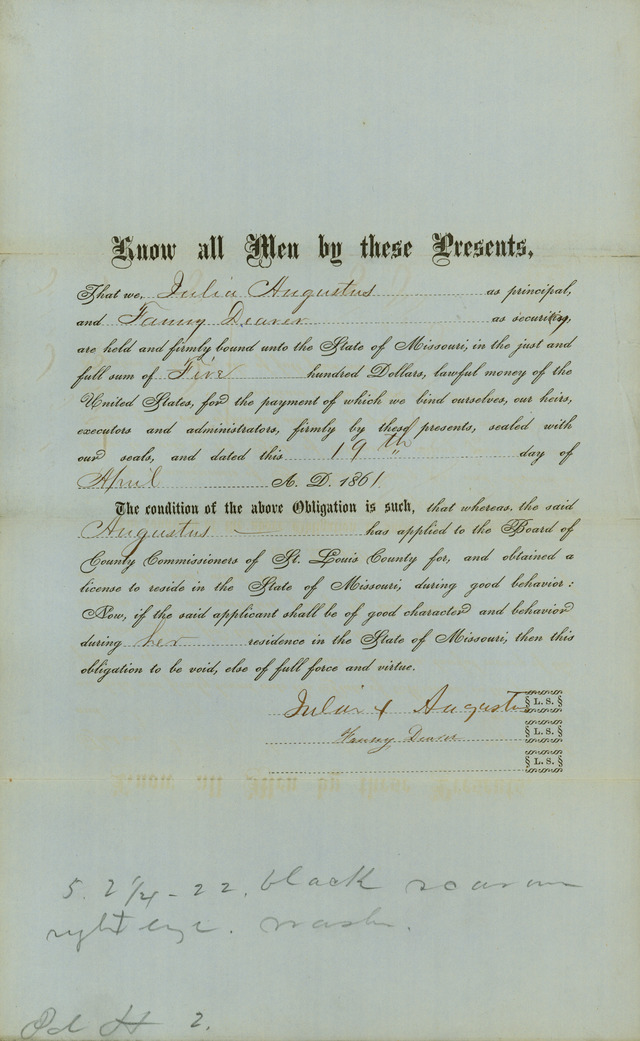 Know all Men by these Presents,
That we, Julia Augustus as principal,
and Fanny Deaver as security,
are held and firmly bound unto the State of Missouri, in the just and
full sum of Five hundred Dollars, lawful money of the
United States, for the payment of which we bind ourselves, our heirs,
executors and administrators, firmly by these presents, sealed with
our seals, and dated this 19th day of
April A. D. 1861
The condition of the above Obligation is such, that whereas, the said
Augustus has applied to the Board of
County Commissioners of St. Louis County for, and obtained a
license to reside in the State of Missouri, during good behavior:
Now, if the said applicant shall be of good character and behavior
during her residence in the State of Missouri, then this
obligation to be void, else of full force and virtue.
Julia X Augustus § L. S. §
Fanny Deaver § L. S. §
§ L. S. §
5. 2 1/4 - 22. black scar on
right eye. wash.
Pd H 2.